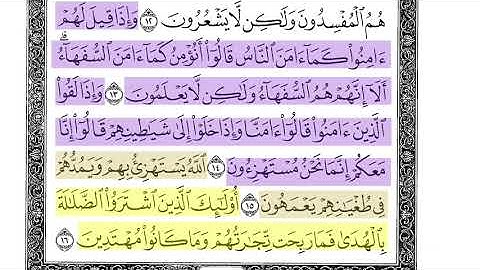 هُمُ ٱلْمُفْسِدُونَ وَلَٰكِن لَّا يَشْعُرُونَ ١٢ وَإِذَا قِيلَ لَهُمْ
ءَامِنُوا۟ كَمَآ ءَامَنَ ٱلنَّاسُ قَالُوٓا۟ أَنُؤْمِنُ كَمَآ ءَامَنَ ٱلسُّفَهَآءُ
أَلَآ إِنَّهُمْ هُمُ ٱلسُّفَهَآءُ وَلَٰكِن لَّا يَعْلَمُونَ ١٣ وَإِذَا لَقُوا۟
ٱلَّذِينَ ءَامَنُوا۟ قَالُوٓا۟ ءَامَنَّا وَإِذَا خَلَوْا۟ إِلَىٰ شَيَٰطِينِهِمْ قَالُوٓا۟ إِنَّا
مَعَكُمْ إِنَّمَا نَحْنُ مُسْتَهْزِءُونَ ١٤ ٱللَّهُ يَسْتَهْزِئُ بِهِمْ وَيَمُدُّهُمْ
فِى طُغْيَٰنِهِمْ يَعْمَهُونَ ١٥ أُو۟لَٰٓئِكَ ٱلَّذِينَ ٱشْتَرَوُا۟ ٱلضَّلَٰلَةَ
بِٱلْهُدَىٰ فَمَا رَبِحَت تِّجَٰرَتُهُمْ وَمَا كَانُوا۟ مُهْتَدِينَ ١٦